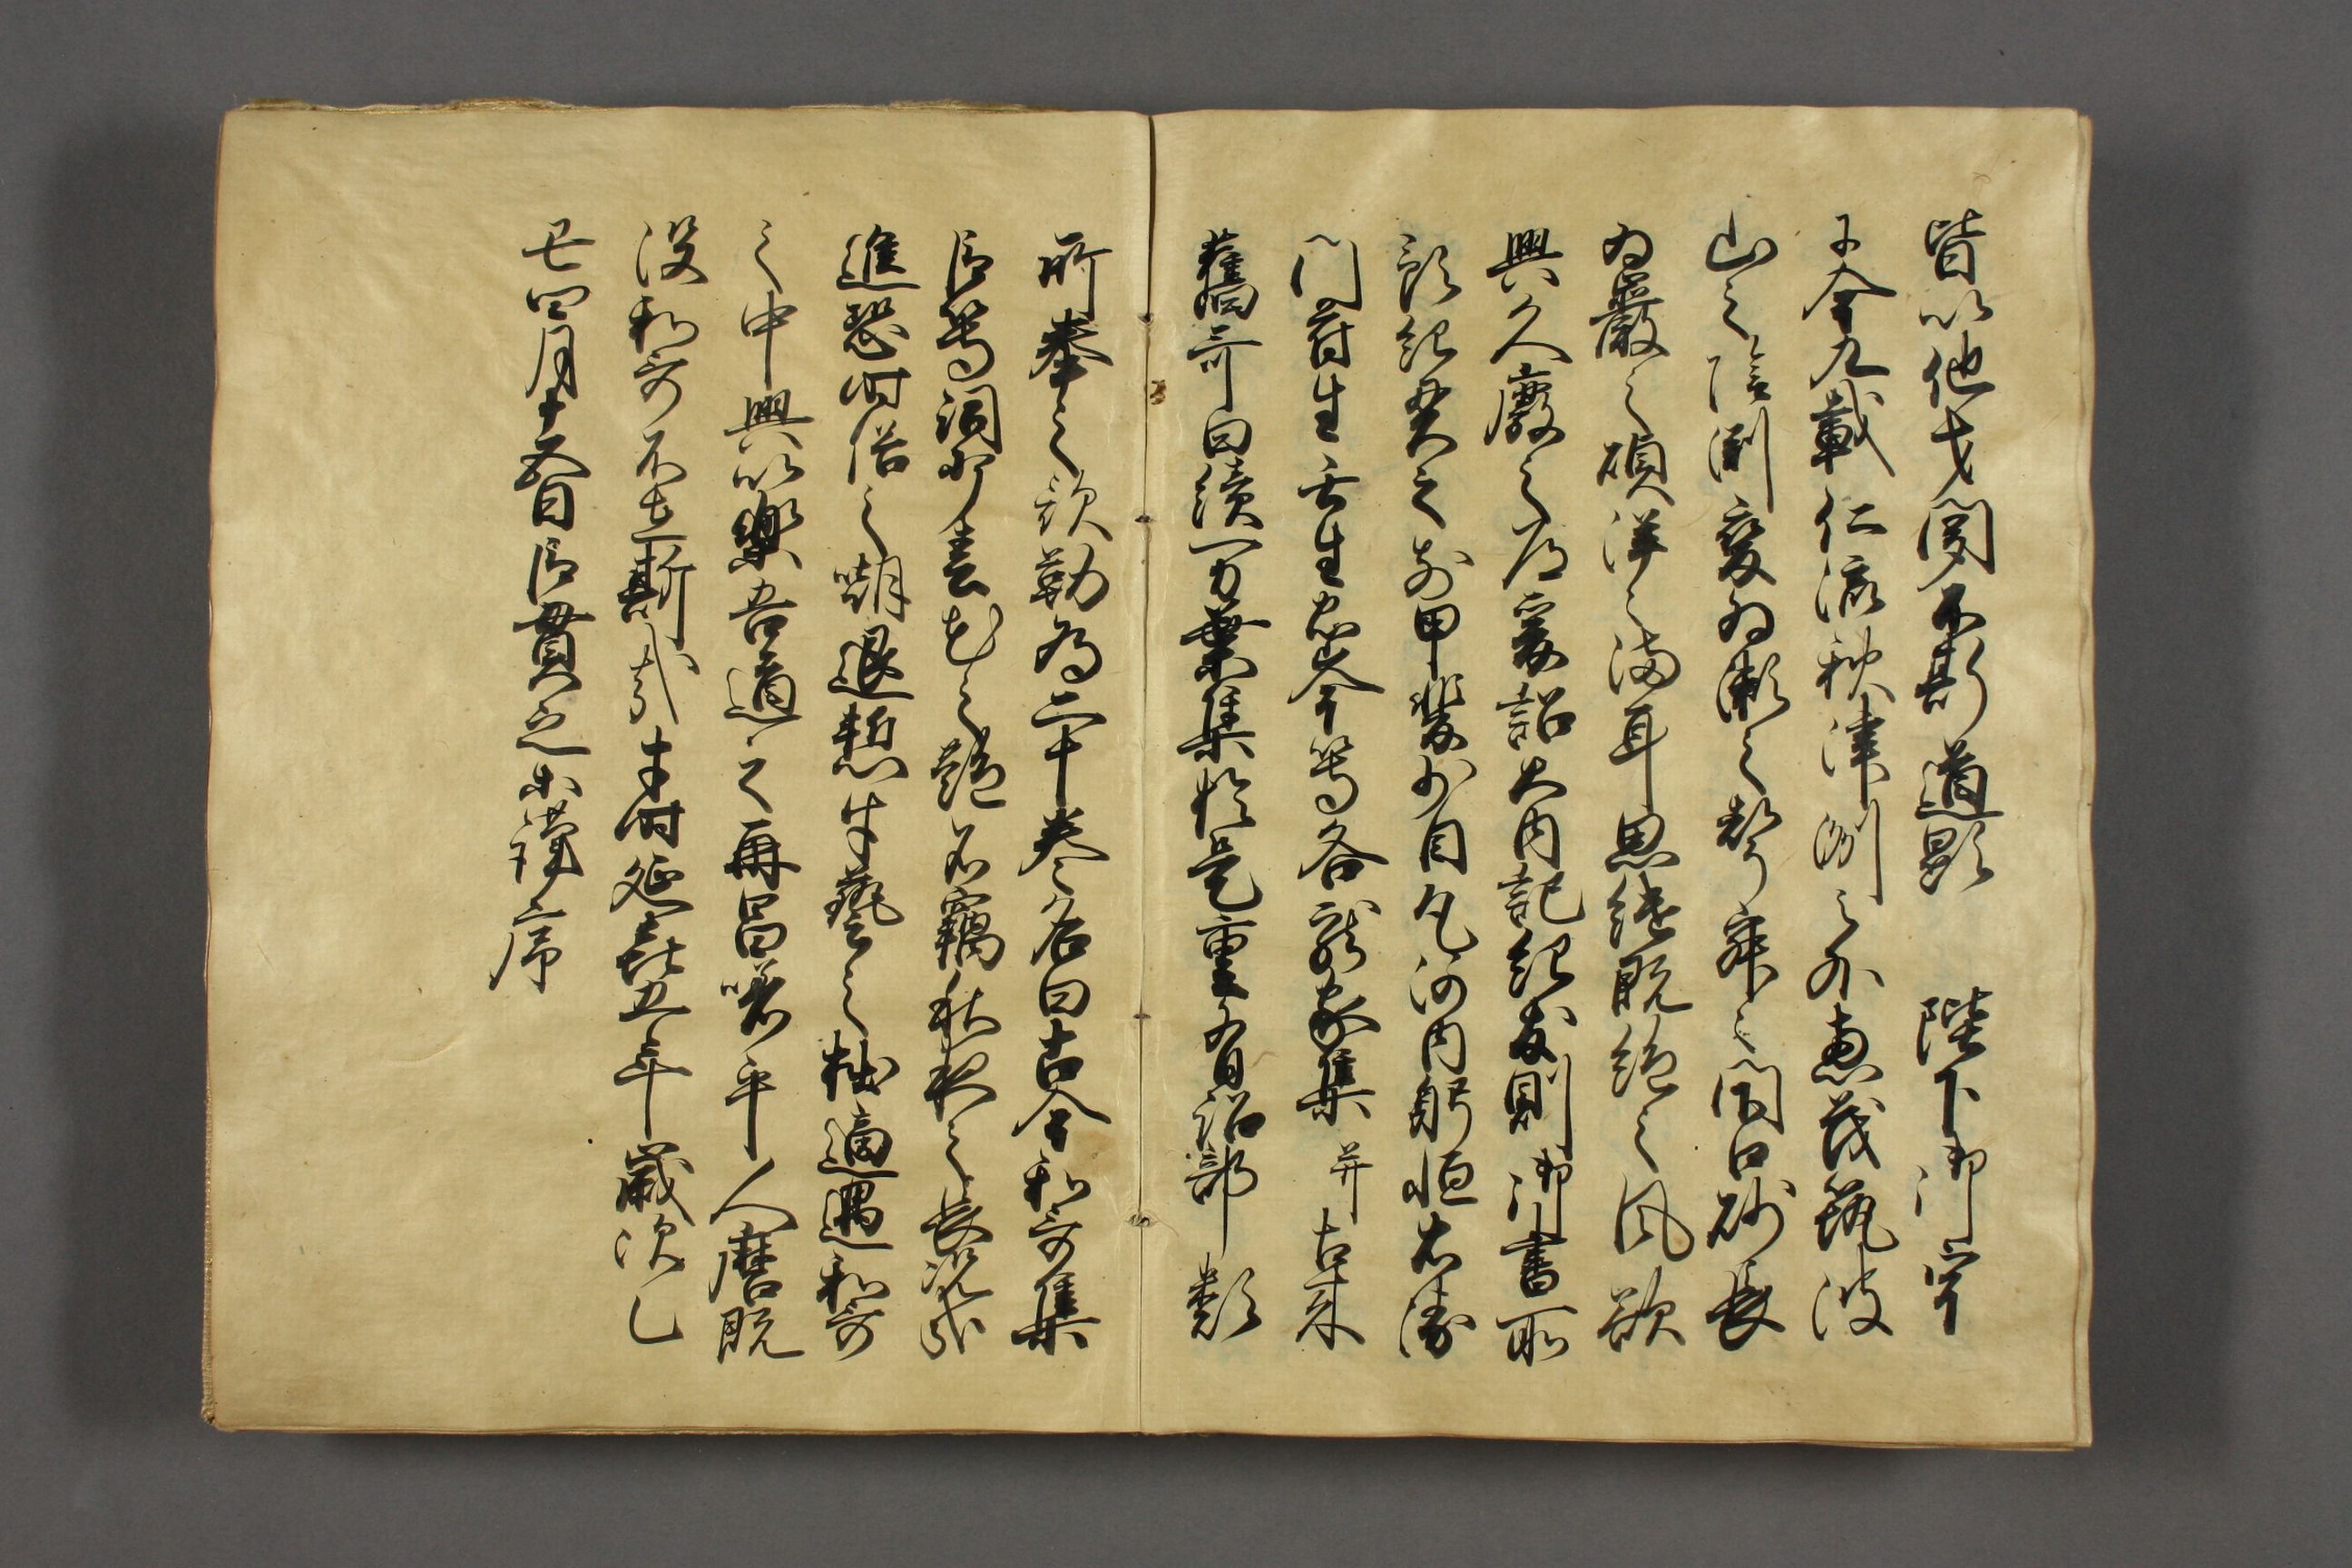 皆以他才聞不斯道顕　陛下御宇
于今九載仁流秋津洲之外恵茂筑波
山之陰淵変為瀬之声寂々閇口砂長
為巌之頌洋々満耳思継既絶之風欲
興久廃之道爰詔大内記紀友則御書所
預紀貫之前甲斐少目凡河内躬恒右衛
門府生壬生忠岑等各献家集并古来
舊哥曰續万葉集於是重有詔部類
所奉之歌勒為二十巻名曰古今和哥集
臣等詞少春花之艶名竊秋夜之長況哉
進恐時俗之嘲退慙才藝之拙適遇和哥
之中興以樂吾道之再昌嗟乎人麿既
没和哥不在斯哉于時延喜五年歳次乙
丑四月十五日臣貫之等謹序